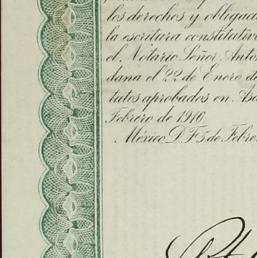 los derechos y obligacio
la escritura constitutiv
el Notario Señor Anto
dana el 22 de Enero d
tutos aprobados en As
Febrero de 1916.
México, D.F. 5 de Febre